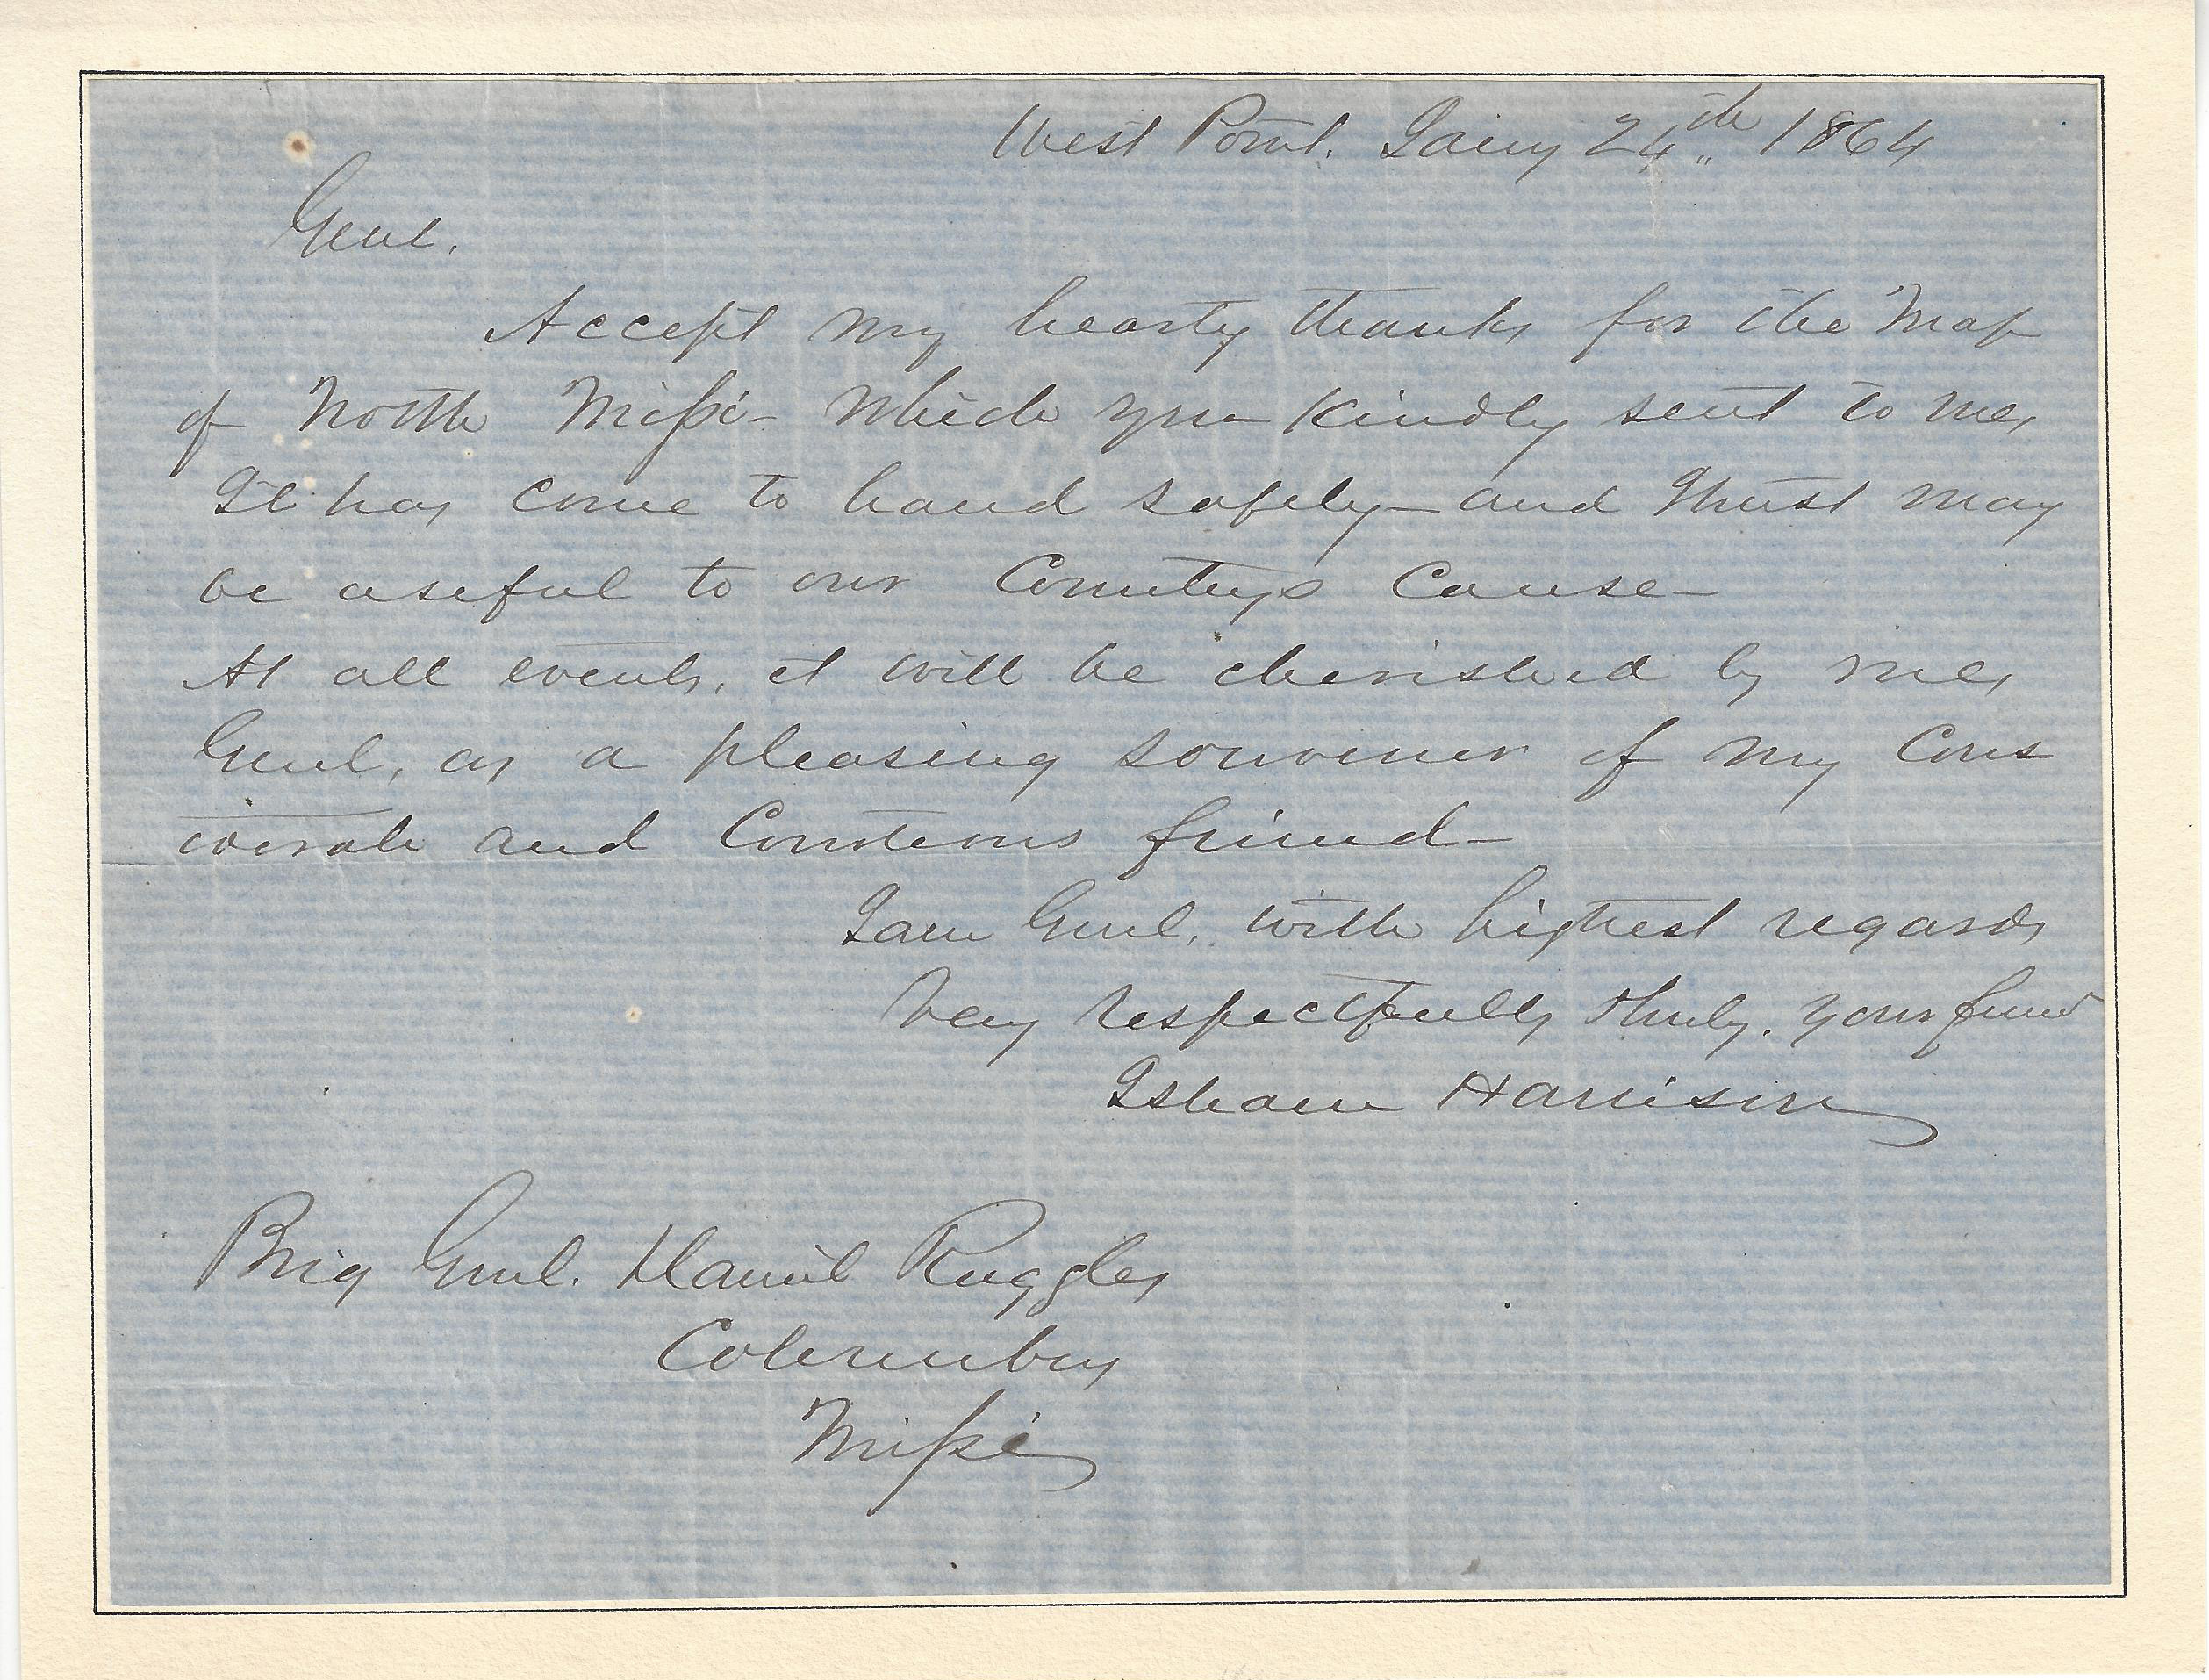 West Point. Jany 24th 1864
Genl.
Accept my hearty thanks for the Map
of North Missi- which you kindly sent to me,
It has come to hand safely - and I trust may
be useful to our Country's Cause -
At all events, it will be cherished by me,
Genl, as a pleasing souvenir of my Cons
iderate and Courteous friend -
I am Genl, with highest regards
Very respectfully & truly. your friend
Isham Harrison
Brig Genl. Daniel Ruggles
Columbus
Missi